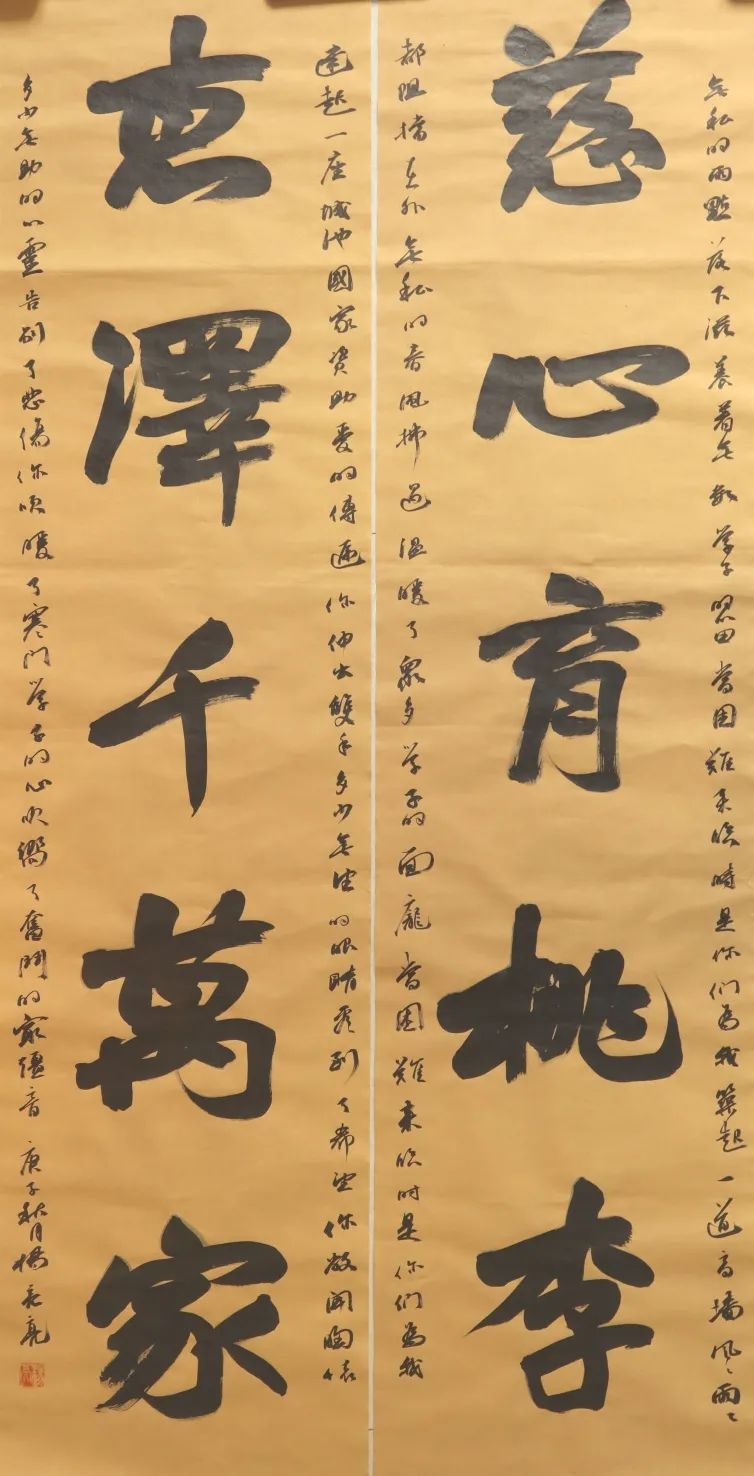 無私的雨點落下滋養着無數學子田當困難來臨時是你們為我築起一道高墻風風雨雨
慈心育桃李
都阻擋在外無私的春風拂過溫暖了眾多學子的面龐當困難來臨時是你們為我
建起一座城池國家資助愛的傳遞你伸出雙手多少無望的眼睛看到了希望你敞開胸懷
惠澤千萬家
多少無助的心靈告別了悲傷你吹暖了寒門學子的心吹響了奮鬥的最強音 庚子秋月楊亮